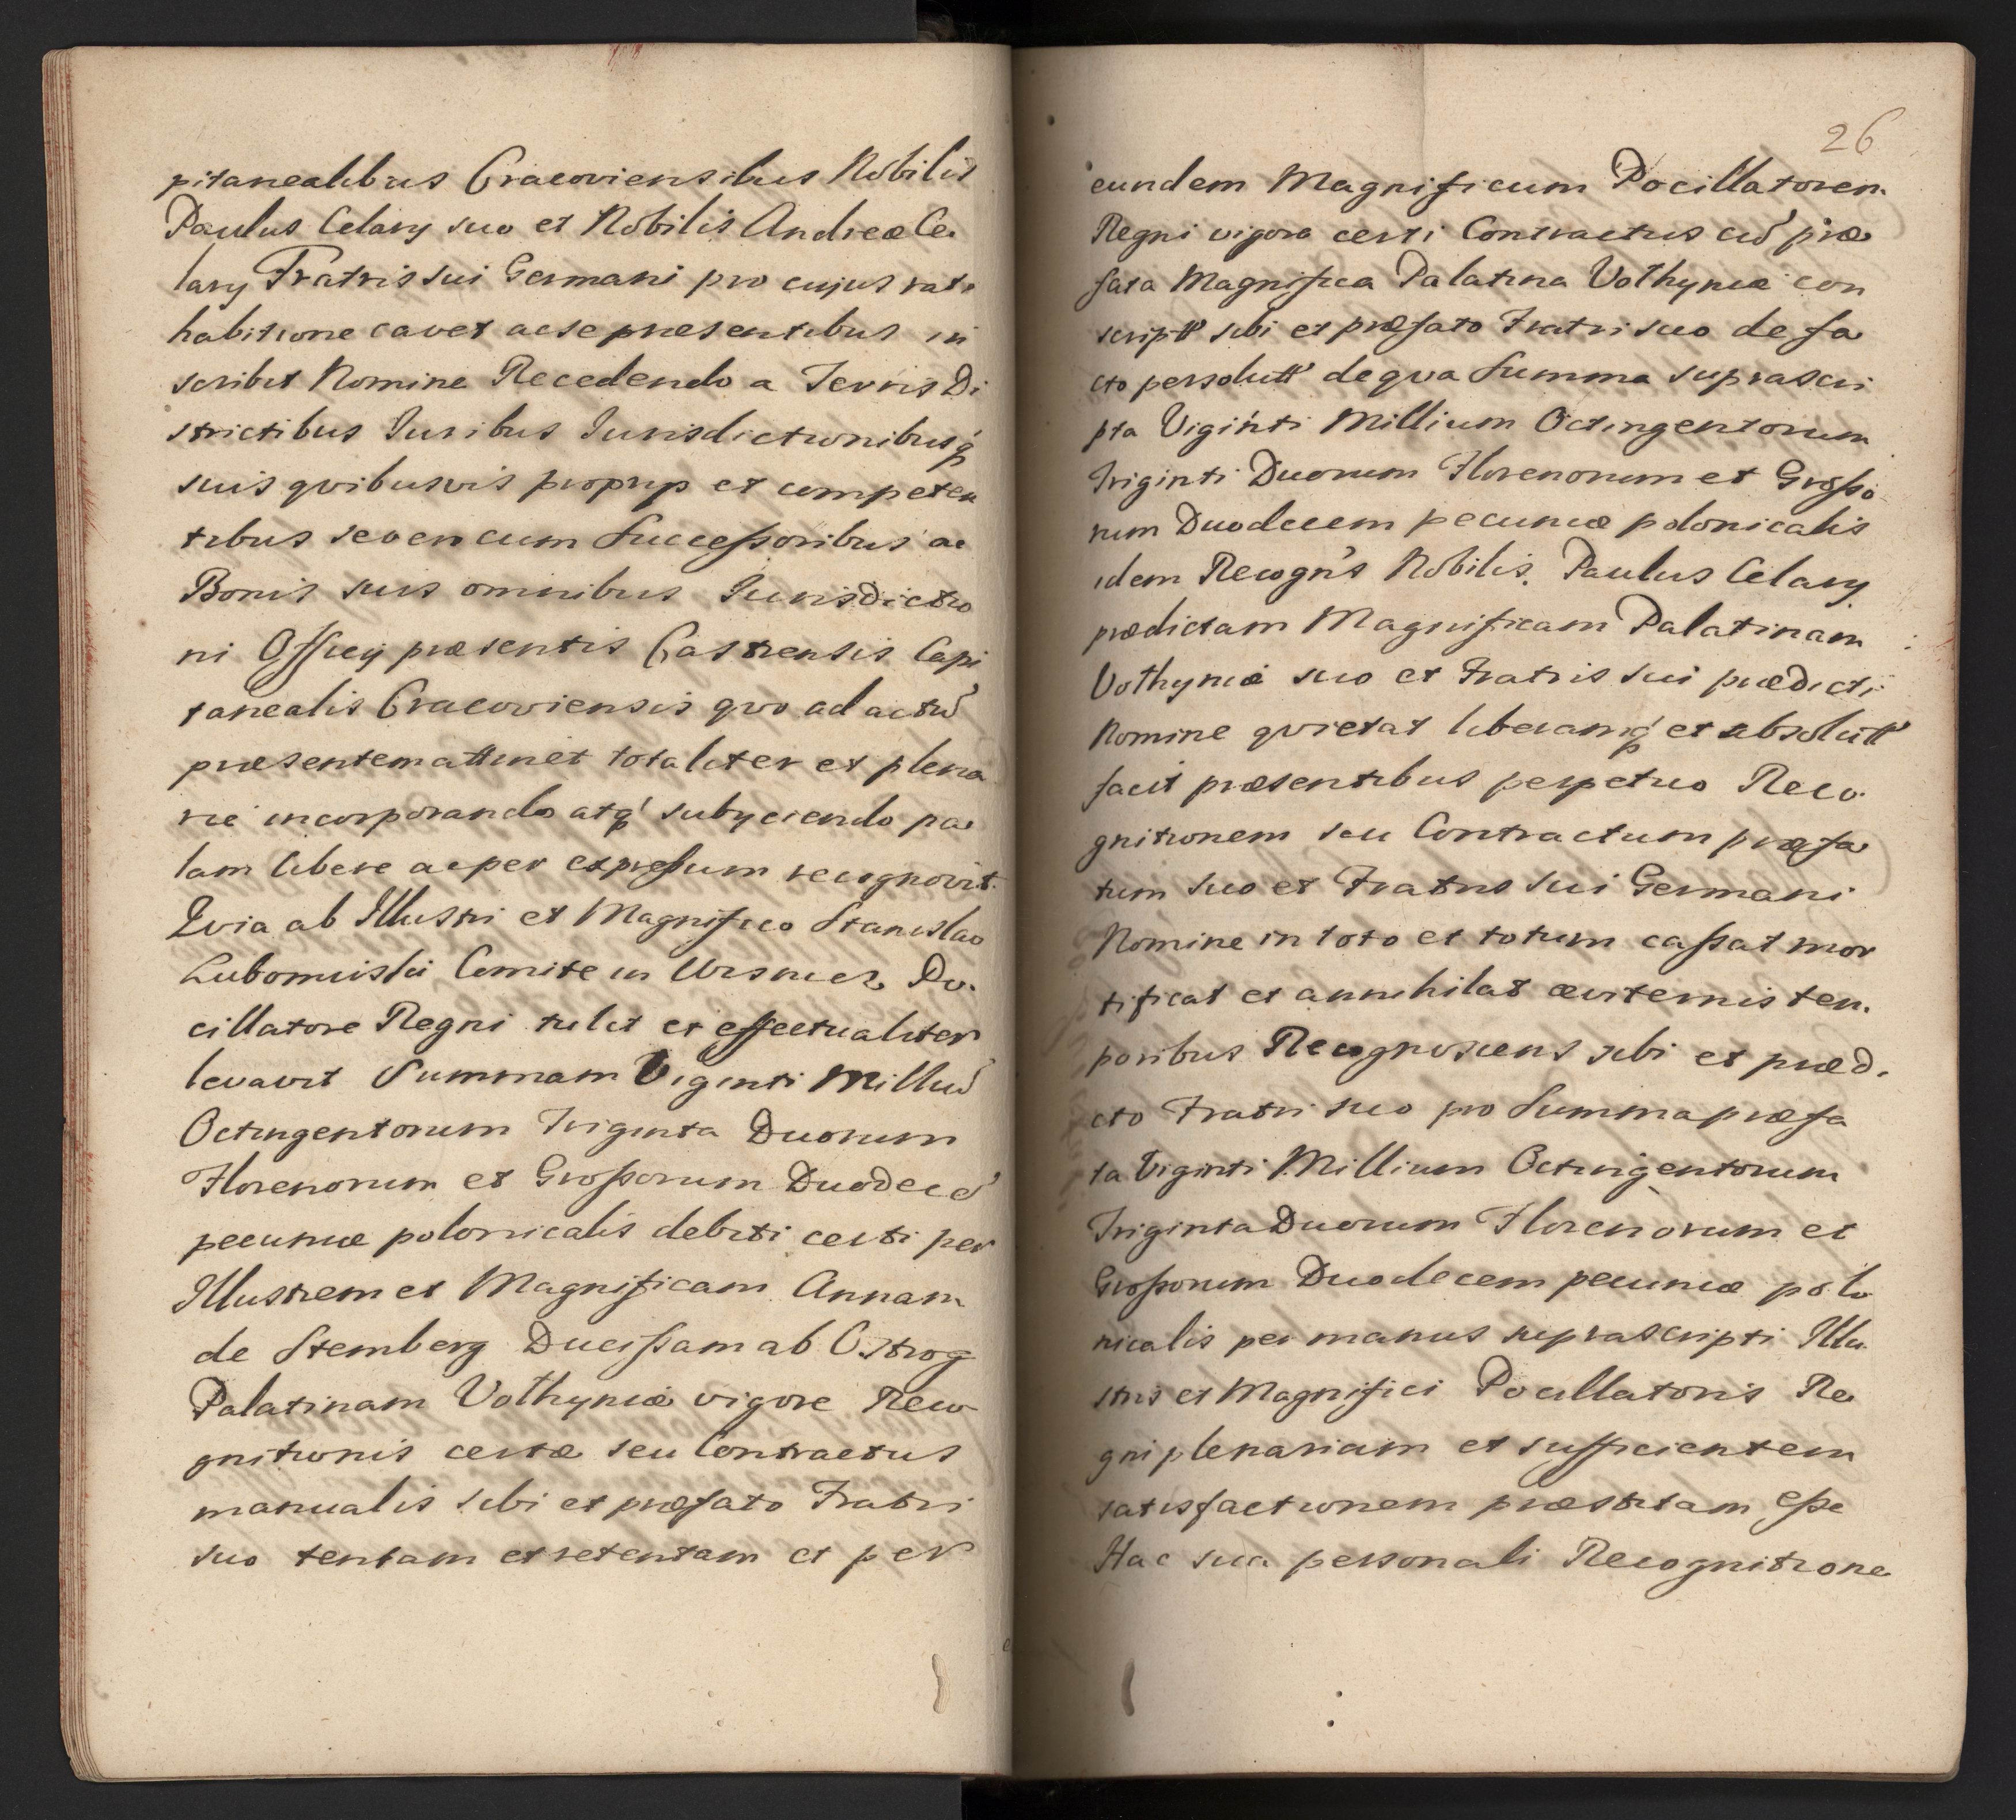 pitanealibus Cracoviensibus Nobilis
Paulus Celary suo et Nobilis Andreæ Ce
lary Fratris sui Germani pro cujus rati
habitione cavet ac se præsentibus in
scribit Nomine Recedendo a Terris Di
strictibus Iuribus Iurisdictionibusq́
suis qvibusvis proprijs et competen
tibus seven cum Successoribus ac
Bonis suis omnibus Iurisdictio
ni Officij præsentis Castrensis Capi
tanealis Cracoviensis qvo ad actū
præsentem attinet totaliter et plena
rie incorporando atq́ subyciendo pa
lam libere ac per expressum recognovit.
Qvia ab Illustri et Magnifico Stanislao
Lubomirski Comite in Wisnicz Po
cillatore Regni tulit et effectualiter
levavit Summam Viginti Milliū
Octingentorum Triginta Duorum
Florenorum et Grossorum Duodecē
pecuniæ polonicalis debiti certi per
Illustrem et Magnificam Annam
de Stemberg Ducissam ab Ostrog
Palatinam Volhyniæ vigore Reco
gnitionis certæ seu Contractus
manualis sibi et præfato Fratri
suo tentam et retentam et per
26
eundem Magnificum Pocillatorem
Regni vigore certi Contractus cū præ
fata Magnifica Palatina Volhyniæ con
script̃ sibi et præfato Fratri suo de fa
cto persolutt̃ de qva Summa suprascri
pta Viginti Millium Octingentorum
Triginti Duorum Florenorum et Grosso
rum Duodecem pecuniæ polonicalis
idem Recogn̄s Nobilis Paulus Celary
prædictam Magnificam Palatinam
Volhyniæ suo et Fratris sui prædicti
Nomine qvietat liberamq́ et absolutt̃
facit præsentibus perpetuo Reco
gnitionem seu Contractum præfa
tum suo et Fratris sui Germani
Nomine in toto et totum cassat mor
tificat et annihilat æviternis tem
poribus Recognoscens sibi et prædi
cto Fratri suo pro Summa præfa
ta Viginti Millium Octingentorum
Triginta Duorum Florenorum et
Grossorum Duodecem pecuniæ polo
nicalis per manus suprascripti Illu
stris et Magnifici Pocillatoris Re
gni plenariam et sufficientem
satisfactionem præstitam esse
Hac sua personali Recognitione